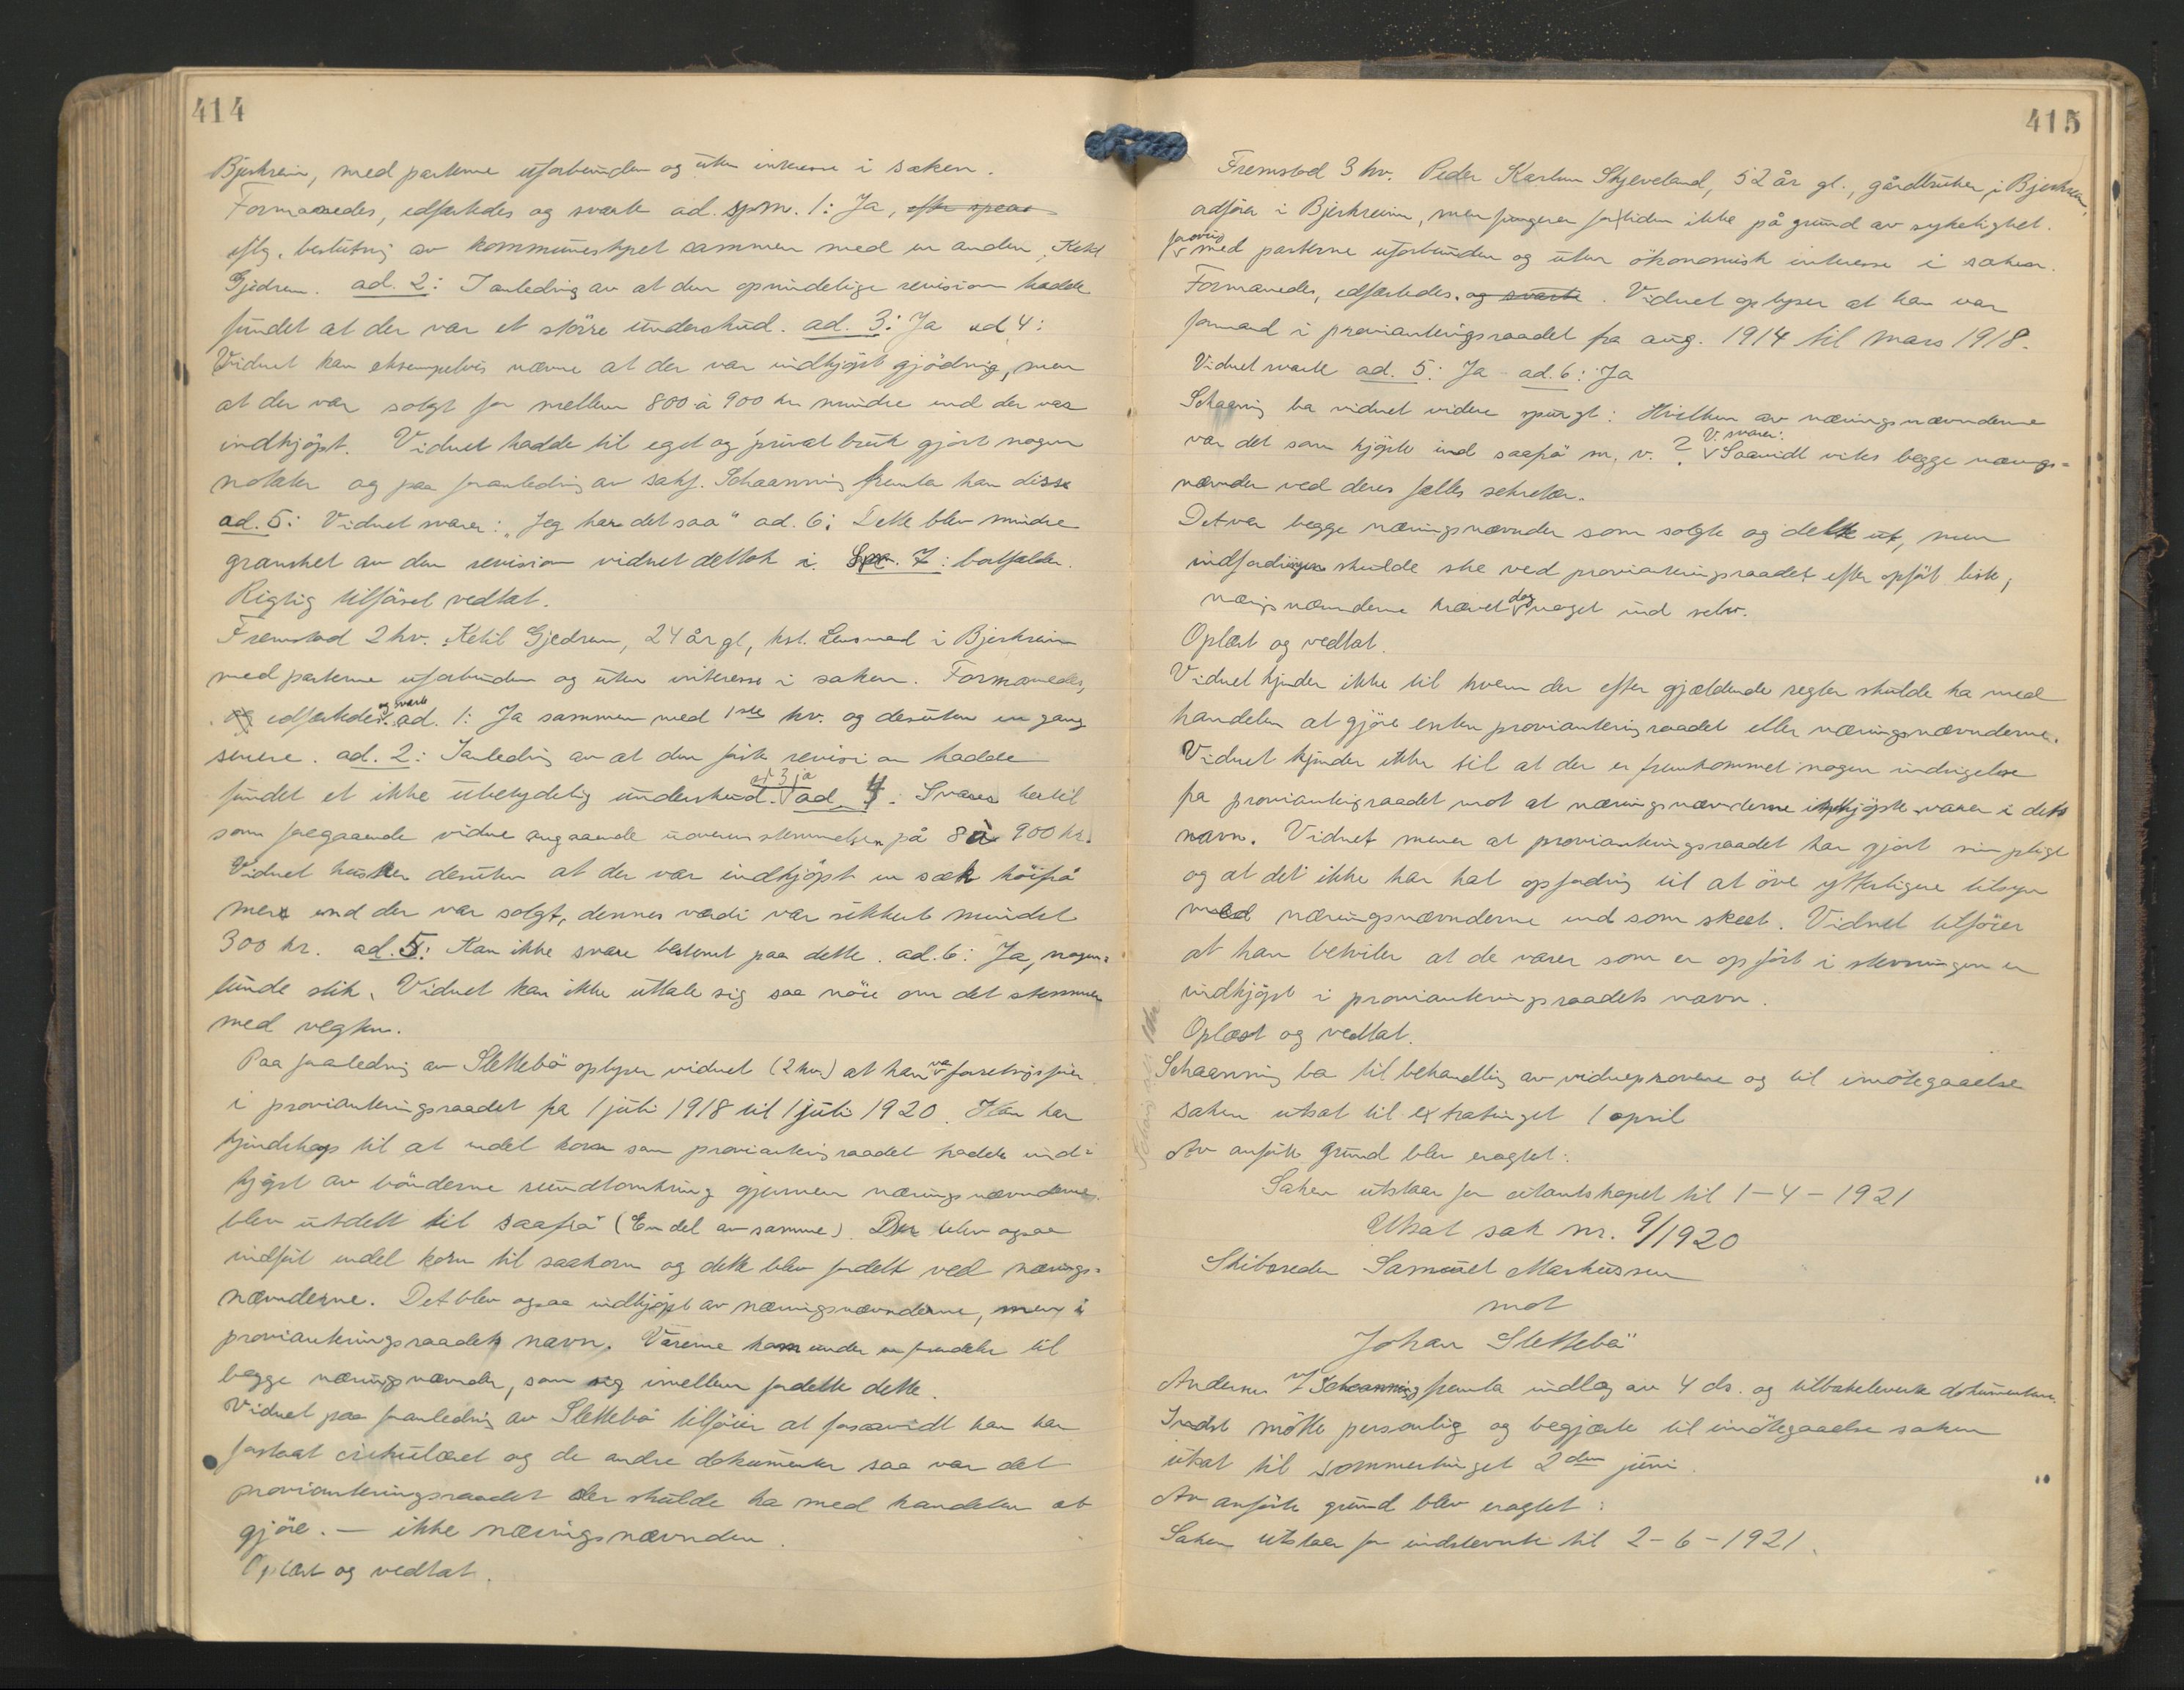 414
Bjerkreim, med parterne uforbunden og uten interesse i saken.
Formanedes, edfæstedes og svarte ad. spm. 1: Ja, efter
eftg. beslutning av kommunestyret sammen med en anden, Ketil
Gjedrem. ad. 2: I anledning av at den oprindelige revision hadde
fundet at der var et större underskud. ad. 3: Ja ad 4:
Vidnet kan eksempelvis nævne at der var indkjöpt gjödning, men
at der var solgt for mellem 800 à 900 kr mindre end der var
indkjöpt. Vidnet hadde til eget og privat bruk gjort nogen
notater og paa foranledning av sakf. Schaanning fremla han disse
ad. 5: Vidnet svarer: "Jeg har det saa" ad. 6: Dette blev mindre
gransket av den revision vidnet deltok i. Spm. 7: bortfalder.
Rigtig tilförsel vedtat.
Fremstod 2 hv. Ketil Gjedrem, 24 år gl, kst. Lensmand i Bjerkreim
med parterne uforbunden og uten interesse i saken. Formanedes,
og edfæstedes. og svarte ad. 1: Ja sammen med 1ste hv. og desuten en gang
senere. ad. 2: I anledning av at den förste revision hadde
fundet et ikke ubetydelig underskud. ad 3 ja ad. 4: Svares hertil
som foregaaende vidne angaaende uoverensstemmelsen på 8 à 900 kr.
Vidnet husker desuten at der var indkjöpt en sæk höifrö
mere end der var solgt, dennes værdi var sikkert mindst
300 kr. ad. 5: Kan ikke svare bestemt paa dette. ad. 6: Ja, nogen=
lunde slik. Vidnet kan ikke uttale sig saa nöie om det stemmer
med vegten.
Paa foranledning av Slettebö oplyser vidnet (2 hv.) at han var forretningsförer
i provianteringsraadet fra 1 juli 1918 til 1 juli 1920. Han har
kjendskap til at endel korn som provianteringsraadet hadde ind=
kjöpt av bönderne rundtomkring gjennem næringsnævnderne
blev utdelt til saafrö (En del av samme). Der blev ogsaa
indfört endel korn til saakorn og dette blev fordelt ved nærings=
nævnderne. Det blev ogsaa indkjöpt av næringsnævnderne, men i
provianteringsraadets navn. Varerne kom under en til
begge næringsnævnder, som sig imellem fordelte dette.
Vidnet paa foranledning av Slettebö tilföier at forsaavidt han har
forstaat cirkulæret og de andre dokumenter saa var det
provianteringsraadet der skulde ha med handelen at
gjöre. — ikke næringsnævnden.
Oplæst og vedtat.
415
Fremstod 3 hv. Peder Karlsen Skjeveland, 52 år gl., gårdbruker, i Bjerkreim,
ordförer i Bjerkreim, men fungerer for tiden ikke på grund av sykelighet.
forövrig med parterne uforbunden og uten ökonomisk interesse i saken.
Formanedes, edfæstedes. og svarte. Vidnet oplyser at han var
formand i provianteringsraadet fra aug. 1914 til mars 1918.
Vidnet svarte ad. 5: Ja - ad. 6: Ja
Schaanning ba vidnet videre spurgt: Hvilken av næringsnævnderne
var det som kjöpte ind saafrö m. v.? V. svarer: Saavidt vites begge nærings=
nævnder ved deres fælles sekretær.
Det var begge næringsnævnder som solgte og delte ut, men
indfordringen skulde ske ved provianteringsraadet efter opfört liste,
næringsnævnderne krævet dog noget ind selv.
Oplæst og vedtat.
Vidnet kjender ikke til hvem der efter gjældende regler skulde ha med
handelen at gjöre enten provianteringsraadet eller næringsnævnderne.
Vidnet kjender ikke til at der er fremkommet nogen indsigelse
fra provianteringsraadet mot at næringsnævnderne indkjöpte varer i dets
navn. Vidnet mener at provianteringsraadet har gjort sin pligt
og at det ikke har hat opfordring til at öve ytterligere tilsyn
med næringsnævnderne end som skeet. Vidnet tilföier
at han betviler at de varer som er opfört i stevningen er
indkjöpt i provianteringsraadets navn.
Oplæst og vedtat.
Schaanning ba til behandling av vidneprovene og til imötegaaelse
saken utsat til extratinget 1 april
Av anförte grund blev eragtet:
Saken utstaar for citantskapet til 1-4-1921
Utsat sak nr. 9/1920
Skibsreder Samuel Markussen
mot
Johan Slettebö
Andersen f Schaanning fremla indlæg av 4 ds. og tilbakeleverte dokumenterne.
Indst. mötte personlig og begjærte til imötegaaelse saken
utsat til sommertinget 2den juni.
Av anförte grund blev eragtet:
Saken utstaar for indstevnte til 2-6-1921.